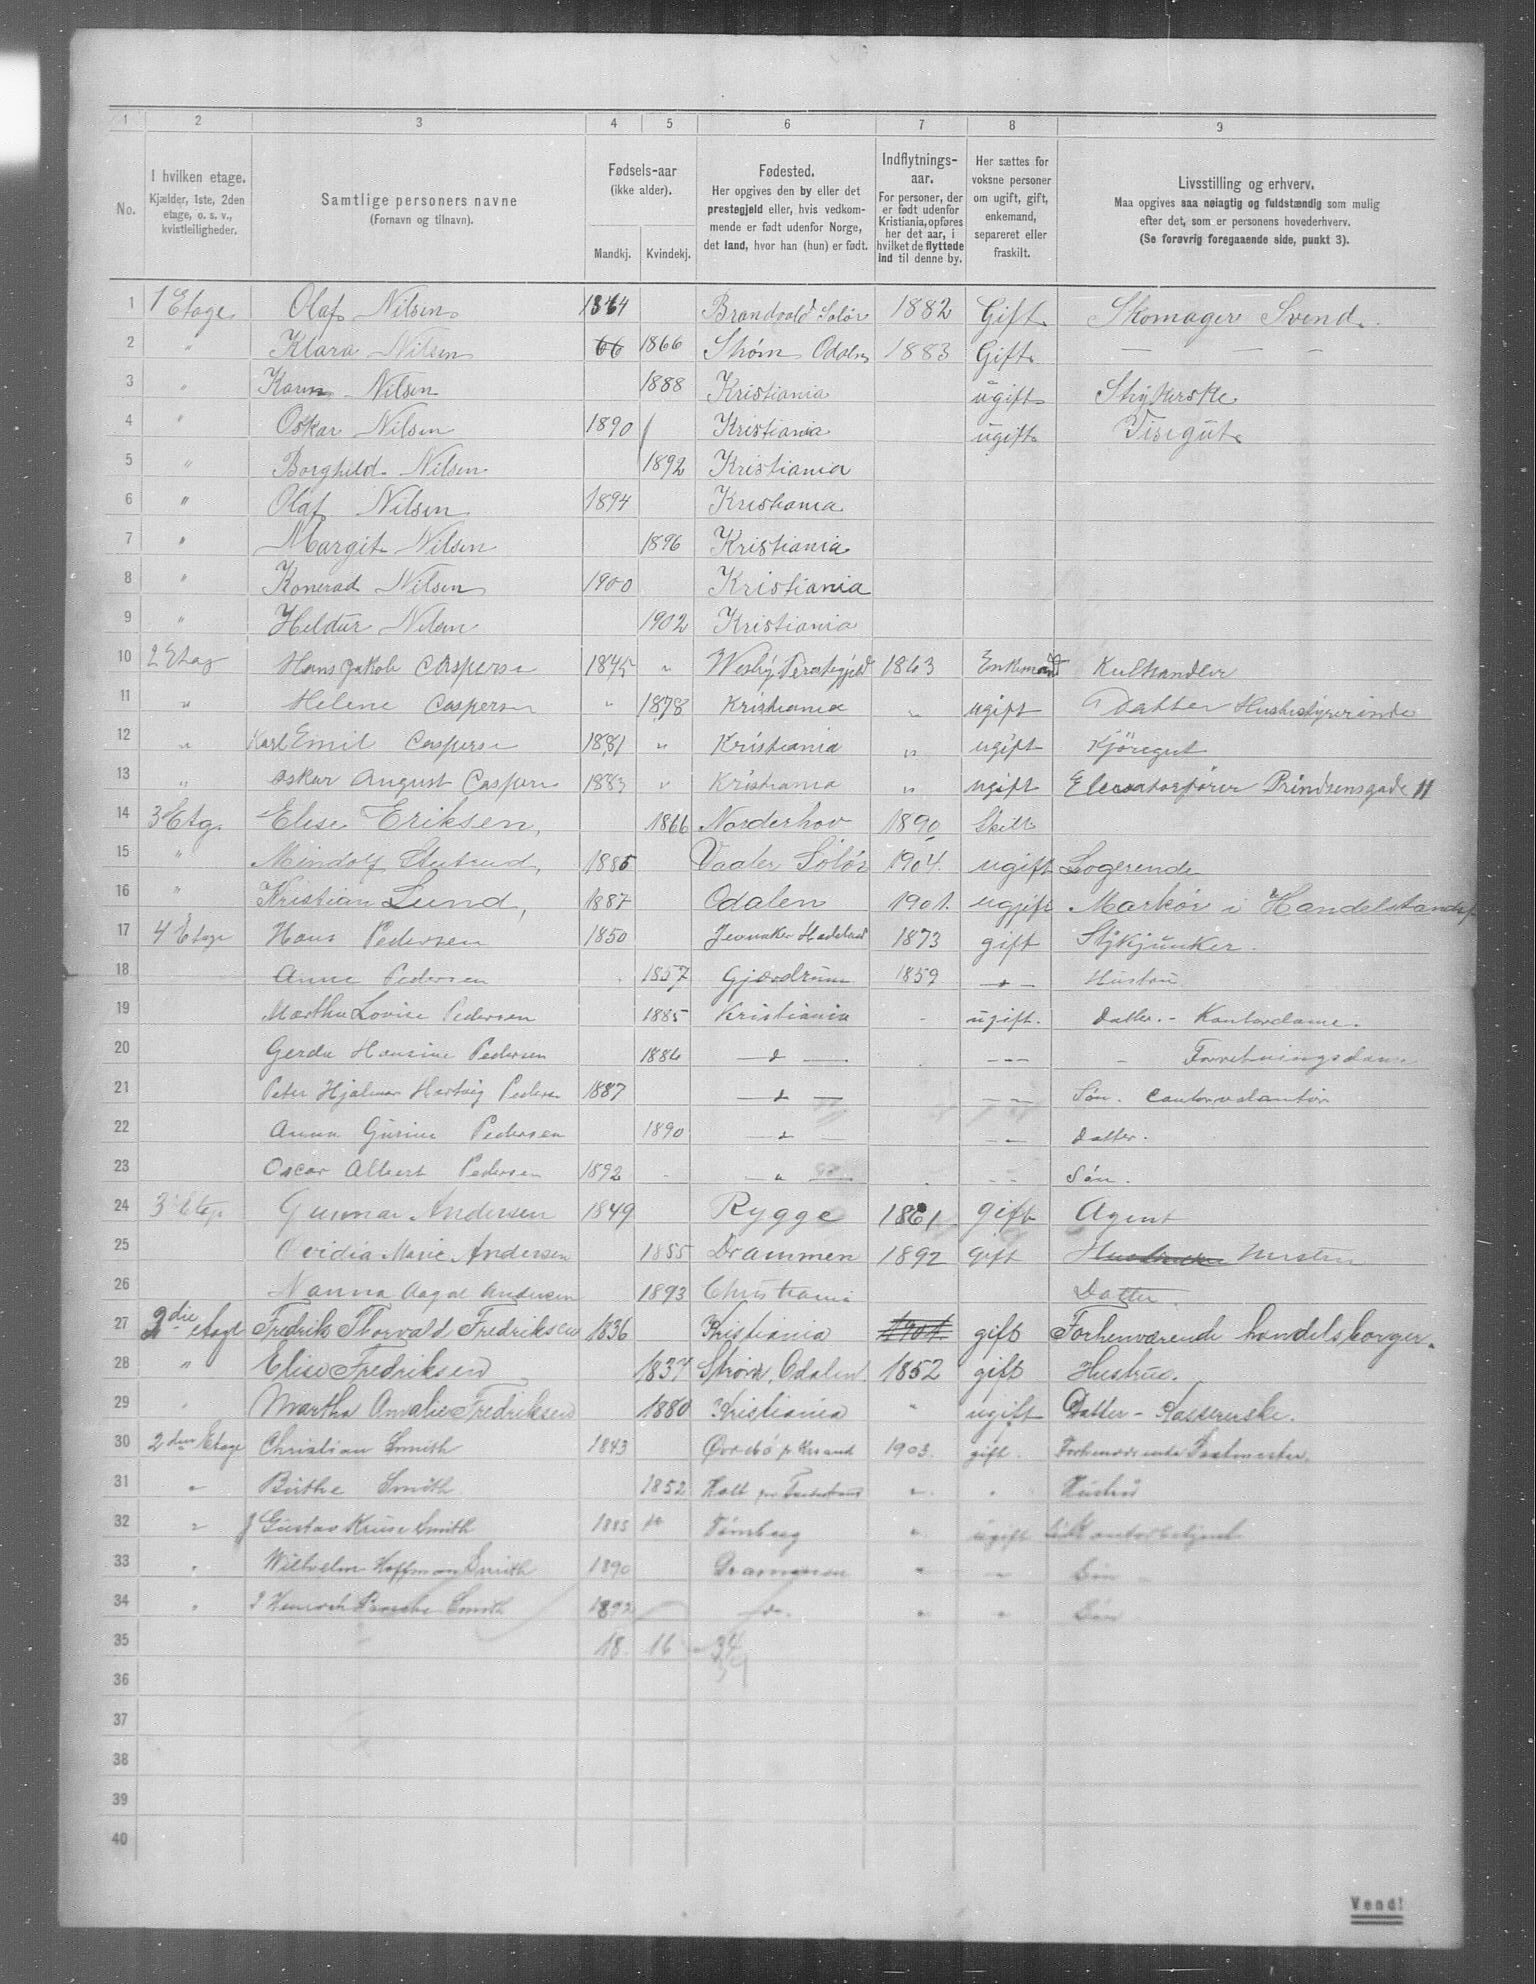 1 2 3 4 5 6 7 8 9
No. I hvilken etage. Kjælder, 1ste, 2den etage, o. s. v., kvistleiligheder. Samtlige personers navne (Fornavn og tilnavn). Fødsels-aar (ikke alder). Mandkj. Kvindekj. Fødested. Her opgives den by eller det prestegjeld eller, hvis vedkommende er født udenfor Norge, det land, hvor han (hun) er født. Indflytnings-aar. For personer, der er født udenfor Kristiania, opføres her det aar, i hvilket de flyttede ind til denne by. Her sættes for voksne personer om ugift, gift, enkemand, separeret eller fraskilt. Livsstilling og erhverv. Maa opgives saa nøiagtig og fuldstændig som mulig efter det, som er personens hovederhverv. (Se forøvrig foregaaende side, punkt 3).
1 1 Etage Olaf Nilsen 1864 Brandvold Solør 1882 Gift Skomager Svend.
2 " Klara Nilsen 66 1866 Strøm Odalen 1883 Gift — — —
3 " Karen Nilsen 1888 Kristiania ugift Strykerske
4 " Oskar Nilsen 1890 Kristiania ugift Visergut
5 " Borghild Nilsen 1892 Kristiania
6 " Olaf Nilsen 1894 Kristiania
7 " Margit Nilsen 1896 Kristiania
8 " Konerad Nilsen 1900 Kristiania
9 " Heldur Nilsen 1902 Kristiania
10 2 Etag Hans Jakob Caspersen 1845 " Vestby Prestegjeld 1863 Enkemand Kulhandler
11 " Helene Caspersen " 1878 Kristiania " ugift Datter Husbestyrerinde
12 " Karl Emil Caspersen 1881 " Kristiania " ugift Kjøregut
13 " Oskar August Caspersen 1883 " Kristiania " ugift Elevatorfører Prindsensgade 11
14 3 Etg. Elise Eriksen, 1866 Norderhov 1890 Skilt
15 " Mindolf, 1885 Vaaler Solør 1904. ugift Logerende
16 " Kristian Lund, 1887 Odalen 1901. ugift Markør i Handelstandsf
17 4 Etage Hans Pedersen 1850 Jevnaker Hadeland 1873 gift
18 Anne Pedersen 1857 Gjerdrum 1859 — " — Hustru
19 Martha Lovise Pedersen 1885 Kristiania - ugift. Datter. - Kontordame.
20 Gerda Hansine Pedersen 1886 — " — — — - Forretningsdame
21 Peter Hjalmar Hartvig Pedersen 1887 — " — — — Søn. Cantorvolantør
22 Anna Gurine Pedersen 1890 — " — — — Datter.
23 Oscar Albert Pedersen 1892 - — " — - - Søn.
24 3 Etg. Gunnar Andersen 1849 Rygge 1861 gift Agent
25 Ovidia Marie Andersen 1855 Drammen 1892 gift
26 Nanna Aagot Andersen 1893 Christiania Datter
27 2die etage Fredrik Thorvald Fredriksen 1836 Kristiania 1901. gift Forhenværende handelsborger.
28 " Elise Fredriksen 1834 Strøm, Odalen. 1852 gift Hustru.
29 " Martha Amalie Fredriksen 1880 Kristiania " ugift Datter - Kassererske.
30 2den Etage Christian Smith 1843 Øvrebø pr Krsand 1903. gift. Forhenværende Postmester.
31 " Birthe Smith 1852 Holt pr Tvedestrand " " Hustru
32 " Gustav Kruse Smith 1885 Tønsberg " ugift
33 " Wilhelm Hoffman Smith 1890 Drammen " " Søn
34 " Smith 1892 — " — " " Søn
35 18 16 - 34
36
37
38
39
40
Vend!